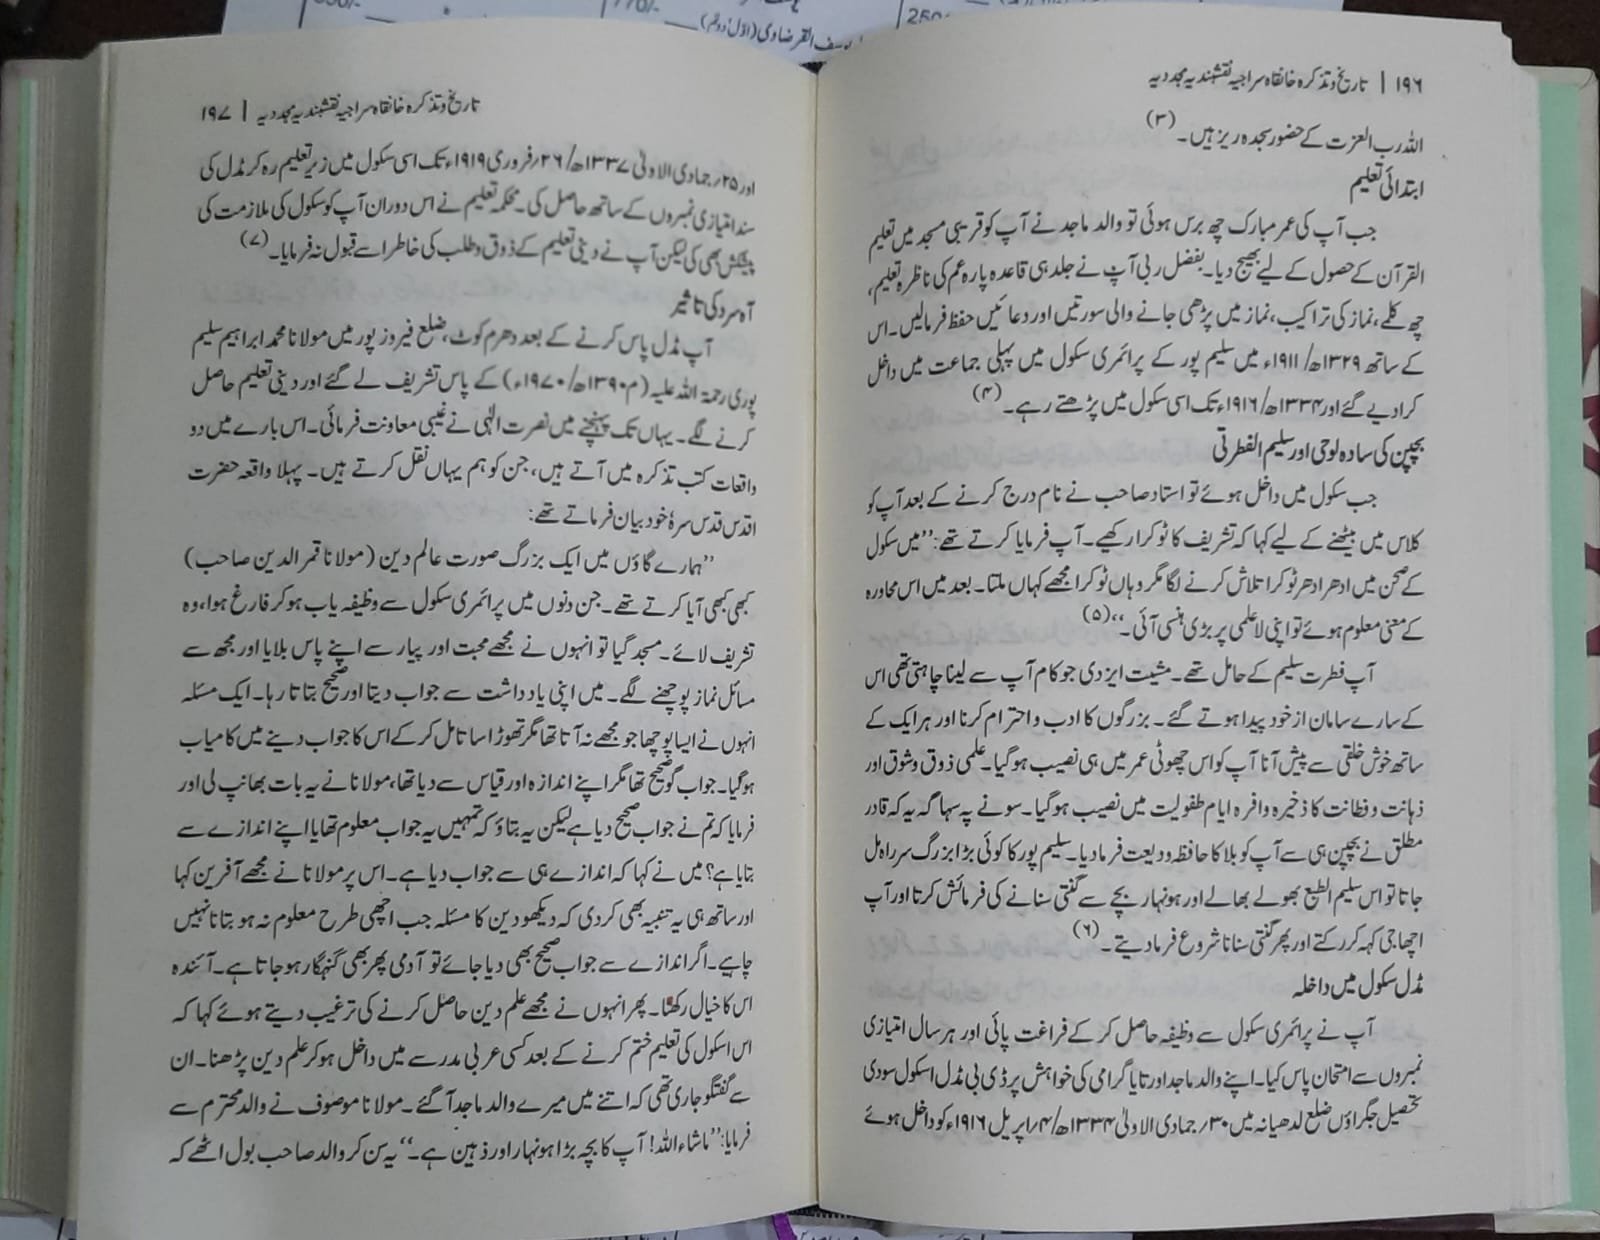 ۱۹۶ | تاریخ و تذکرہ خانقاہ سراجیہ نقشبندیہ مجددیہ
اللہ رب العزت کے حضور سجدہ ریز ہیں۔ (۳)
ابتدائی تعلیم
جب آپ کی عمر مبارک چھ برس ہوئی تو والد ماجد نے آپ کو قریبی مسجد میں تعلیم
القرآن کے حصول کے لیے بھیج دیا۔ بفضل ربی آپ نے جلد ہی قاعدہ پارہ عم کی ناظرہ تعلیم،
چھ کلمے، نماز کی تراکیب، نماز میں پڑھی جانے والی سورتیں اور دعائیں حفظ فرمالیں۔ اس
کے ساتھ ۱۳۲۹ھ/۱۹۱۱ء میں سلیم پور کے پرائمری سکول میں پہلی جماعت میں داخل
کرا دیے گئے اور ۱۳۳۴ھ/۱۹۱۶ء تک اسی سکول میں پڑھتے رہے۔ (۴)
بچپن کی سادہ لوحی اور سلیم الفطرتی
جب سکول میں داخل ہوئے تو استاد صاحب نے نام درج کرنے کے بعد آپ کو
کلاس میں بیٹھنے کے لیے کہا کہ تشریف کا ٹوکرا رکھیے۔ آپ فرمایا کرتے تھے: ”میں سکول
کے صحن میں ادھر ادھر ٹوکرا تلاش کرنے لگا مگر وہاں ٹوکرا مجھے کہاں ملتا۔ بعد میں اس محاورہ
کے معنی معلوم ہوئے تو اپنی لاعلمی پر بڑی ہنسی آئی۔“ (۵)
آپ فطرت سلیم کے حامل تھے۔ مشیت ایزدی جو کام آپ سے لینا چاہتی تھی اس
کے سارے سامان از خود پیدا ہوتے گئے۔ بزرگوں کا ادب و احترام کرنا اور ہر ایک کے
ساتھ خوش خلقی سے پیش آنا آپ کو اس چھوٹی عمر میں ہی نصیب ہو گیا۔ علمی ذوق و شوق اور
ذہانت و فطانت کا ذخیرہ وافرہ ایام طفولیت میں نصیب ہو گیا۔ سونے پہ سہاگہ یہ کہ قادر
مطلق نے بچپن ہی سے آپ کو بلا کا حافظہ ودیعت فرما دیا۔ سلیم پور کا کوئی بڑا بزرگ سر راہ مل
جاتا تو اس سلیم الطبع بھولے بھالے اور ہونہار بچے سے گنتی سنانے کی فرمائش کرتا اور آپ
اچھا جی کہہ کر رکتے اور پھر گنتی سنانا شروع فرما دیتے۔ (۶)
مڈل سکول میں داخلہ
آپ نے پرائمری سکول سے وظیفہ حاصل کر کے فراغت پائی اور ہر سال امتیازی
نمبروں سے امتحان پاس کیا۔ اپنے والد ماجد اور تایا گرامی کی خواہش پر ڈی بی مڈل اسکول سودی
تحصیل جگراؤں ضلع لدھیانہ میں ۳۰؍ جمادی الاولیٰ ۱۳۳۴ھ/۴؍ اپریل ۱۹۱۶ء کو داخل ہوئے
تاریخ و تذکرہ خانقاہ سراجیہ نقشبندیہ مجددیہ | ۱۹۷
اور ۲۵؍ جمادی الاولیٰ ۱۳۳۷ھ/۲۶؍ فروری ۱۹۱۹ء تک اسی سکول میں زیر تعلیم رہ کر مڈل کی
سند امتیازی نمبروں کے ساتھ حاصل کی۔ محکمہ تعلیم نے اس دوران آپ کو سکول کی ملازمت کی
پیشکش بھی کی لیکن آپ نے دینی تعلیم کے ذوق و طلب کی خاطر اسے قبول نہ فرمایا۔ (۷)
آہ سرد کی تاثیر
آپ مڈل پاس کرنے کے بعد دھرم کوٹ، ضلع فیروز پور میں مولانا محمد ابراہیم سلیم
پوری رحمۃ اللہ علیہ (م ۱۳۹۰ھ/۱۹۷۰ء) کے پاس تشریف لے گئے اور دینی تعلیم حاصل
کرنے لگے۔ یہاں تک پہنچنے میں نصرت الٰہی نے غیبی معاونت فرمائی۔ اس بارے میں دو
واقعات کتب تذکرہ میں آتے ہیں، جن کو ہم یہاں نقل کرتے ہیں۔ پہلا واقعہ حضرت
اقدس قدس سرہٗ خود بیان فرماتے تھے:
”ہمارے گاؤں میں ایک بزرگ صورت عالم دین (مولانا قمر الدین صاحب)
کبھی کبھی آیا کرتے تھے۔ جن دنوں میں پرائمری سکول سے وظیفہ یاب ہو کر فارغ ہوا، وہ
تشریف لائے۔ مسجد گیا تو انہوں نے مجھے محبت اور پیار سے اپنے پاس بلایا اور مجھ سے
مسائل نماز پوچھنے لگے۔ میں اپنی یادداشت سے جواب دیتا اور صحیح بتاتا رہا۔ ایک مسئلہ
انہوں نے ایسا پوچھا جو مجھے نہ آتا تھا مگر تھوڑا سا تامل کر کے اس کا جواب دینے میں کامیاب
ہو گیا۔ جواب گو صحیح تھا مگر اپنے اندازہ اور قیاس سے دیا تھا، مولانا نے یہ بات بھانپ لی اور
فرمایا کہ تم نے جواب صحیح دیا ہے لیکن یہ بتاؤ کہ تمہیں یہ جواب معلوم تھا یا اپنے اندازے سے
بتایا ہے؟ میں نے کہا کہ اندازے ہی سے جواب دیا ہے۔ اس پر مولانا نے مجھے آفرین کہا
اور ساتھ ہی یہ تنبیہ بھی کر دی کہ دیکھو دین کا مسئلہ جب اچھی طرح معلوم نہ ہو بتانا نہیں
چاہیے۔ اگر اندازے سے جواب صحیح بھی دیا جائے تو آدمی پھر بھی گنہگار ہو جاتا ہے۔ آئندہ
اس کا خیال رکھنا۔ پھر انہوں نے مجھے علم دین حاصل کرنے کی ترغیب دیتے ہوئے کہا کہ
اس اسکول کی تعلیم ختم کرنے کے بعد کسی عربی مدرسے میں داخل ہو کر علم دین پڑھنا۔ ان
سے گفتگو جاری تھی کہ اتنے میں میرے والد ماجد آ گئے۔ مولانا موصوف نے والد محترم سے
فرمایا: ”ماشاء اللہ! آپ کا بچہ بڑا ہونہار اور ذہین ہے۔“ یہ سن کر والد صاحب بول اٹھے کہ